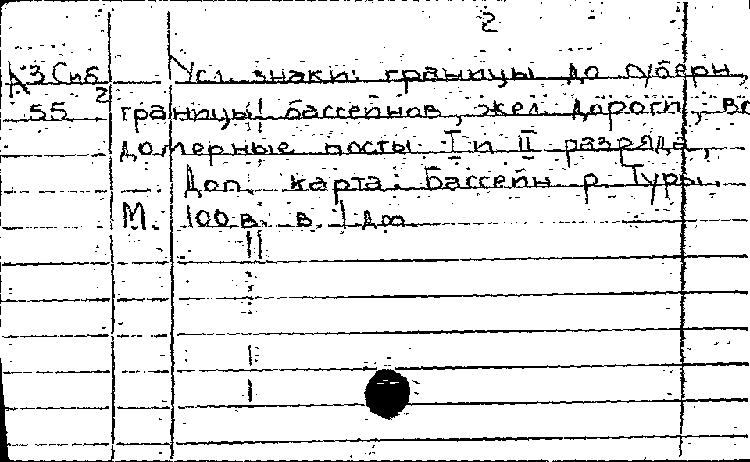 2
К3 Сиб Усл. знаки: границы до губерн.,
55 2 границы бассейнов, жел. дороги, во
домерные посты I и II разряда,
Доп. карта: Бассейн р. Туры.
М. 100 в. в 1 дм